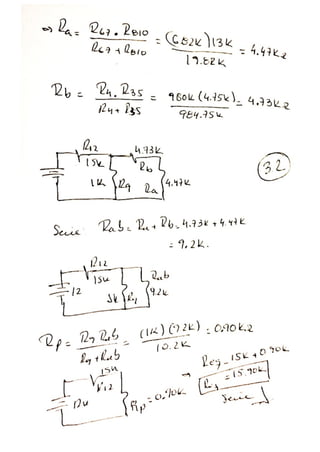 ⇒ Ra = R67 · R810 / R67 + R810 = (6.82K)13K / 19.82K = 4.47KΩ
Rb = R4 · R35 / R4 + R35 = 980K (4.75K) / 984.75K = 4.73KΩ
R12 4.73K
15K Rb
1K R9 Ra 4.47K
32
Serie: Rab = Ra + Rb = 4.73K + 4.47K
= 9.2K.
R12
15K Rab
12 1K R9 9.2K
Rp = R9 Rab / R9 + Rab = (1K)(9.2K) / 10.2K = 0.90KΩ
15K
R12
12V Rp = 0.90K
→ Req = 15K + 0.90K
= 15.90K
Serie